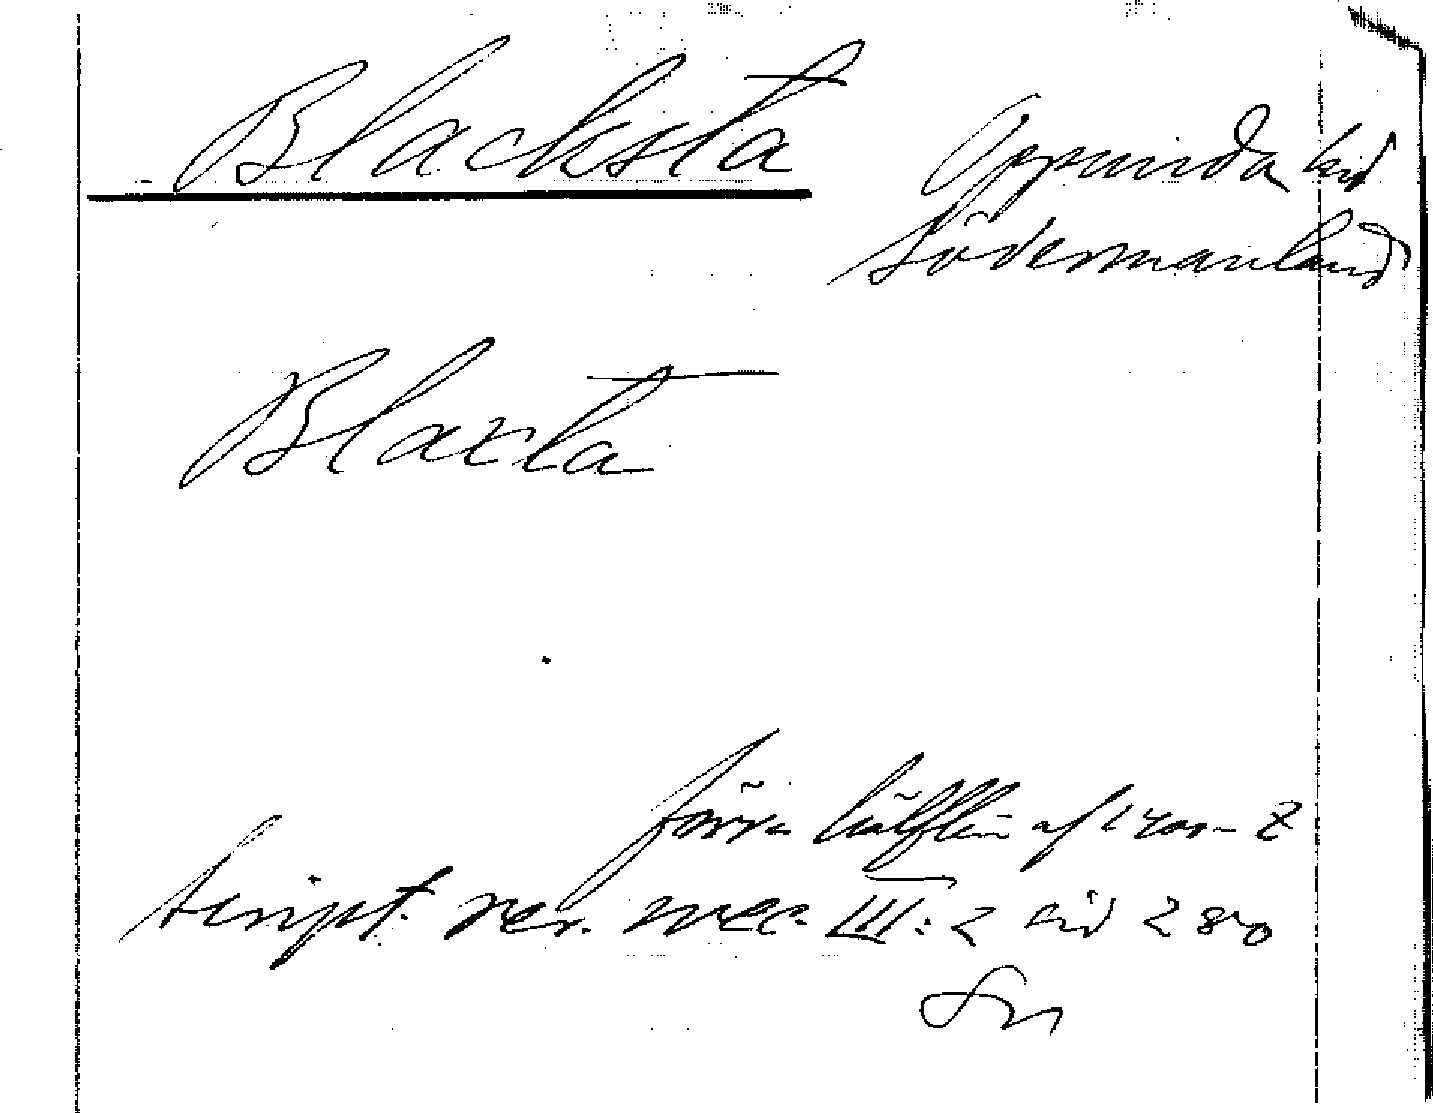 Blacksta
Oppunda hd
Södermanland
Blaxta
förra hälften af 1400-t
Script. rer. svec. III: 2 sid 280